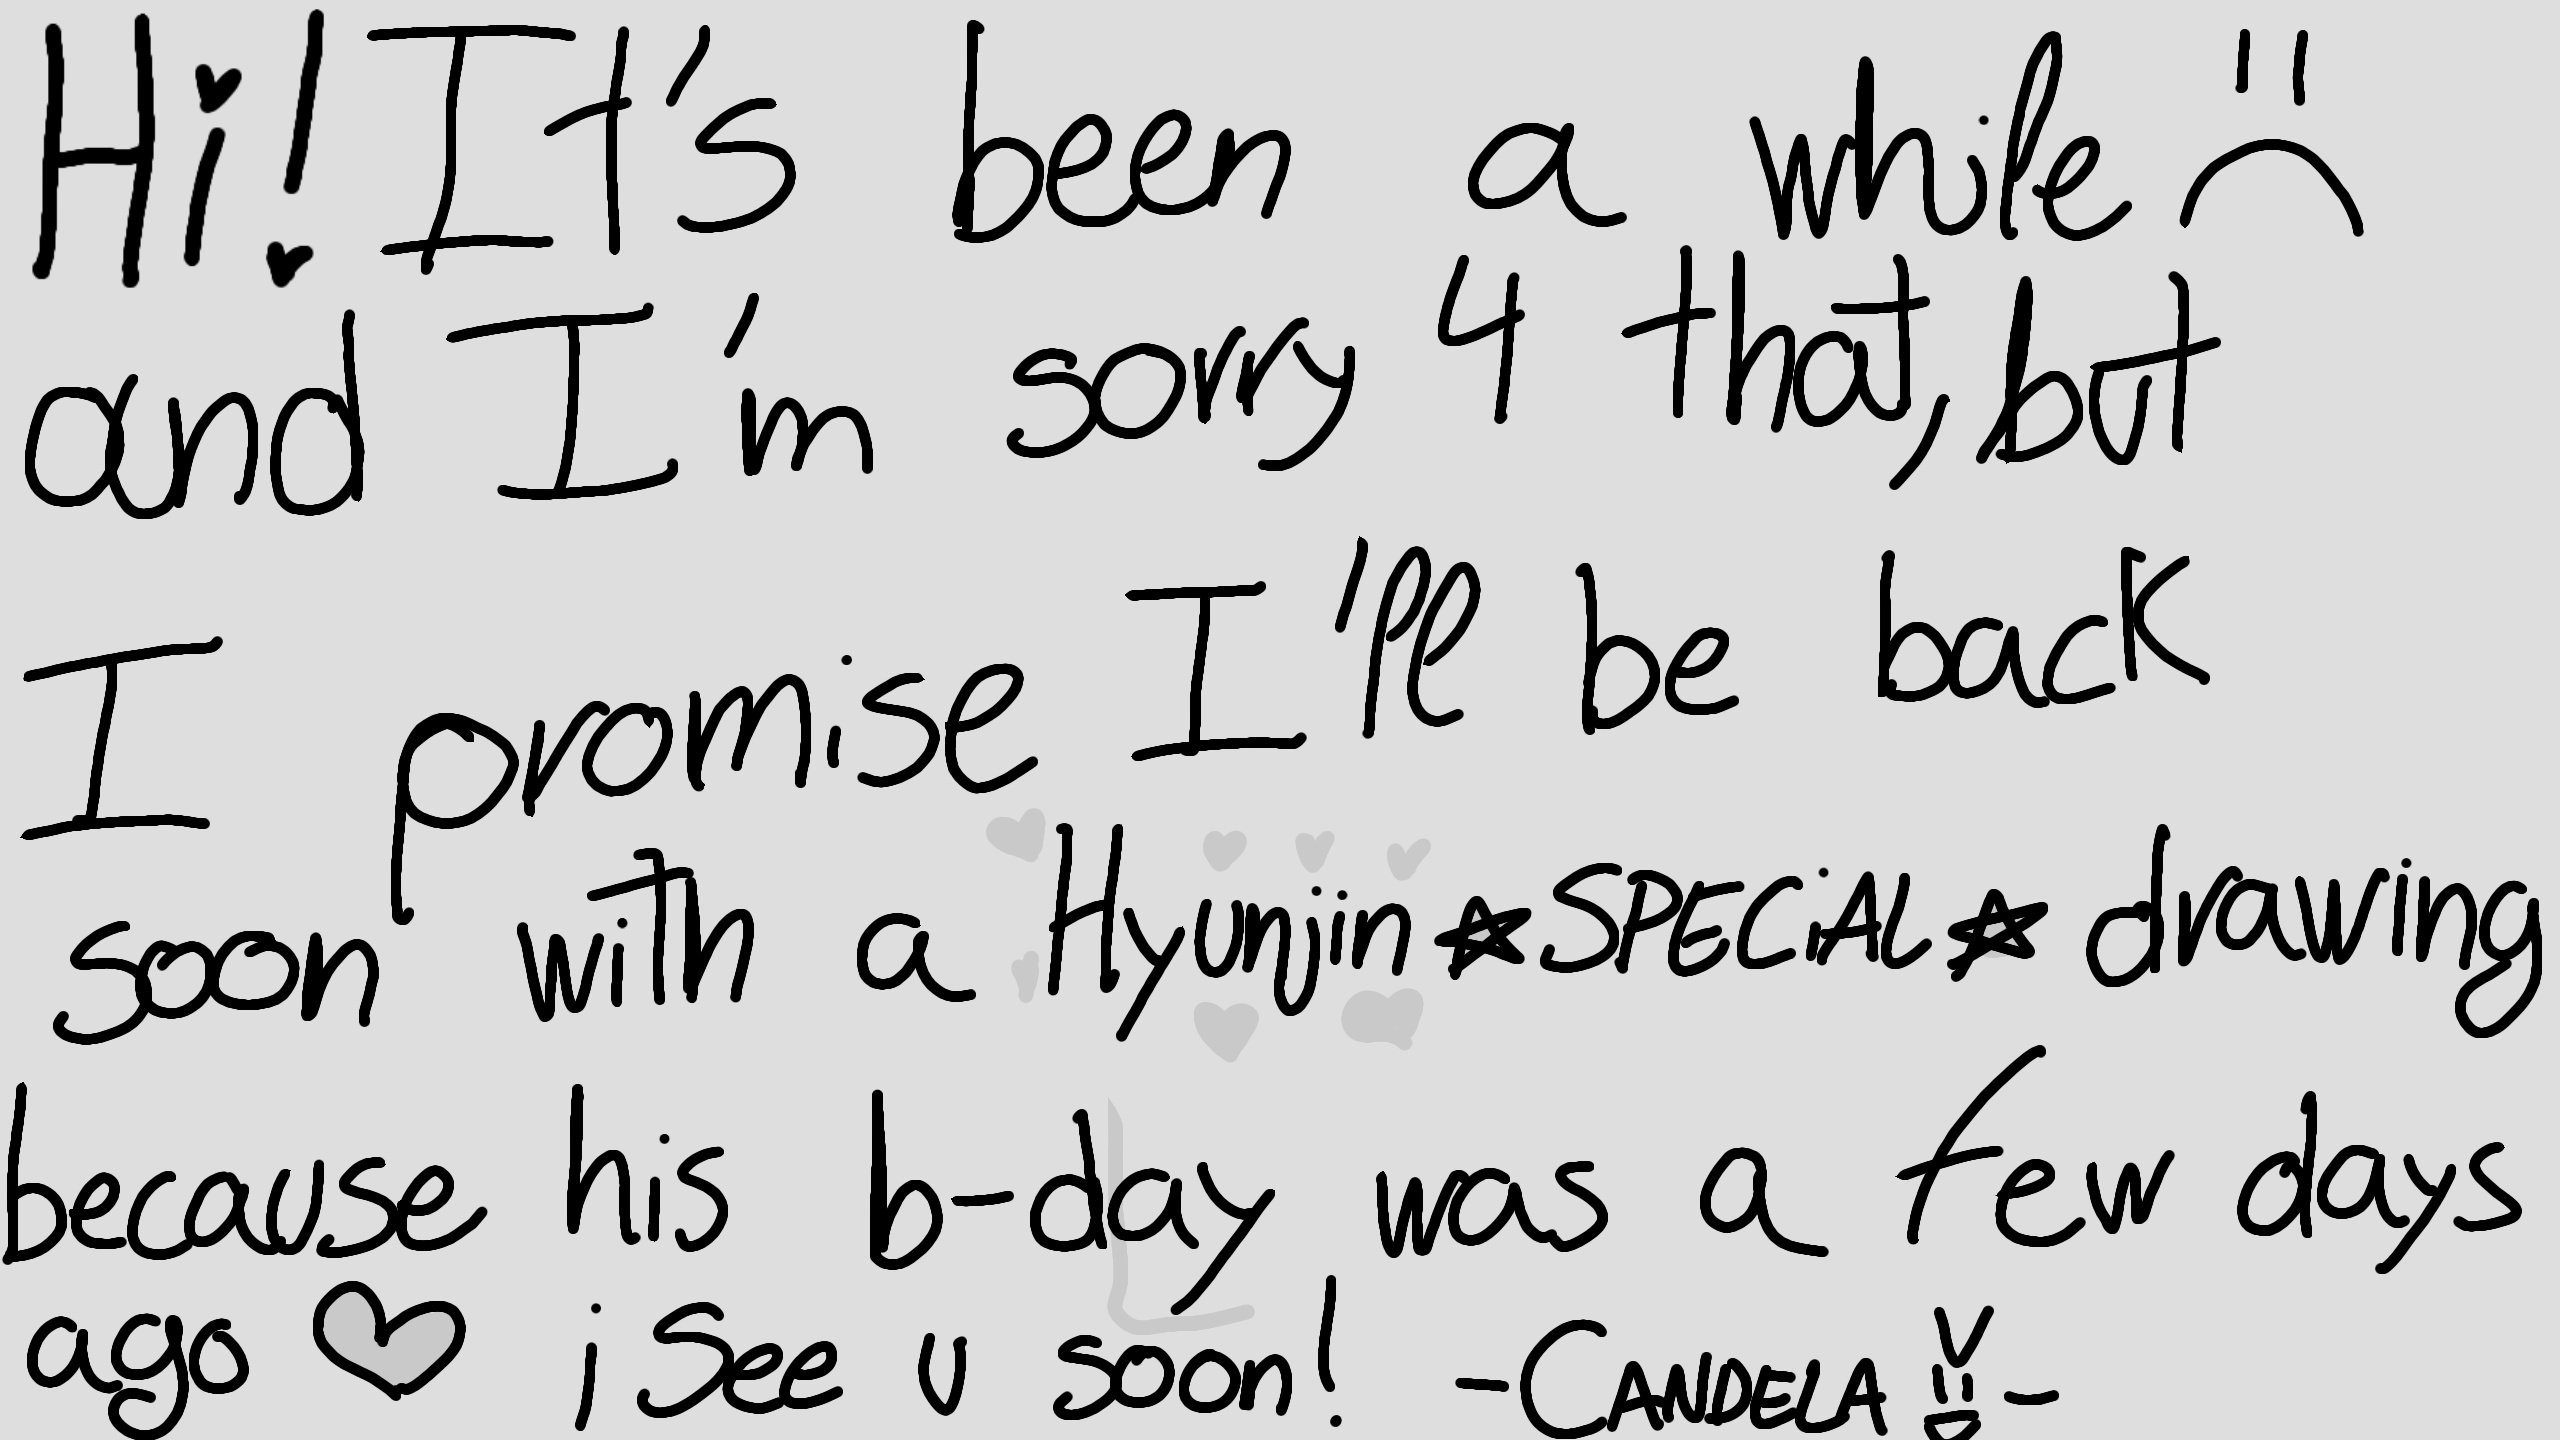 Hi! It's been a while :(
and I'm sorry 4 that, but
I promise I'll be back
soon with a Hyunjin ☆SPECiAL☆ drawing
because his b-day was a few days
ago ♡ ¡See u soon! -CANDELA-